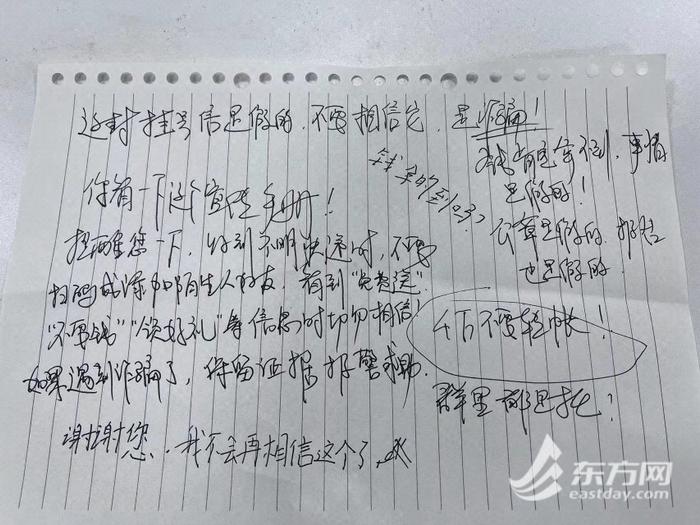 这封挂号信是假的，不要相信它，是诈骗！
钱肯定拿不到，事情
是假的！
公章是假的，报告
也是假的！
钱拿的到吗？
你看一下这个宣传手册！
提醒您一下，收到不明快递时，不要
扫码或添加陌生人好友，看到“免费送”
“不要钱”“领好礼”等信息时切勿相信！
如果遇到诈骗了，保留证据报警求助．
千万不要转账！
群里都是托！
谢谢您，我不会再相信这个了
东方网
eastday.com